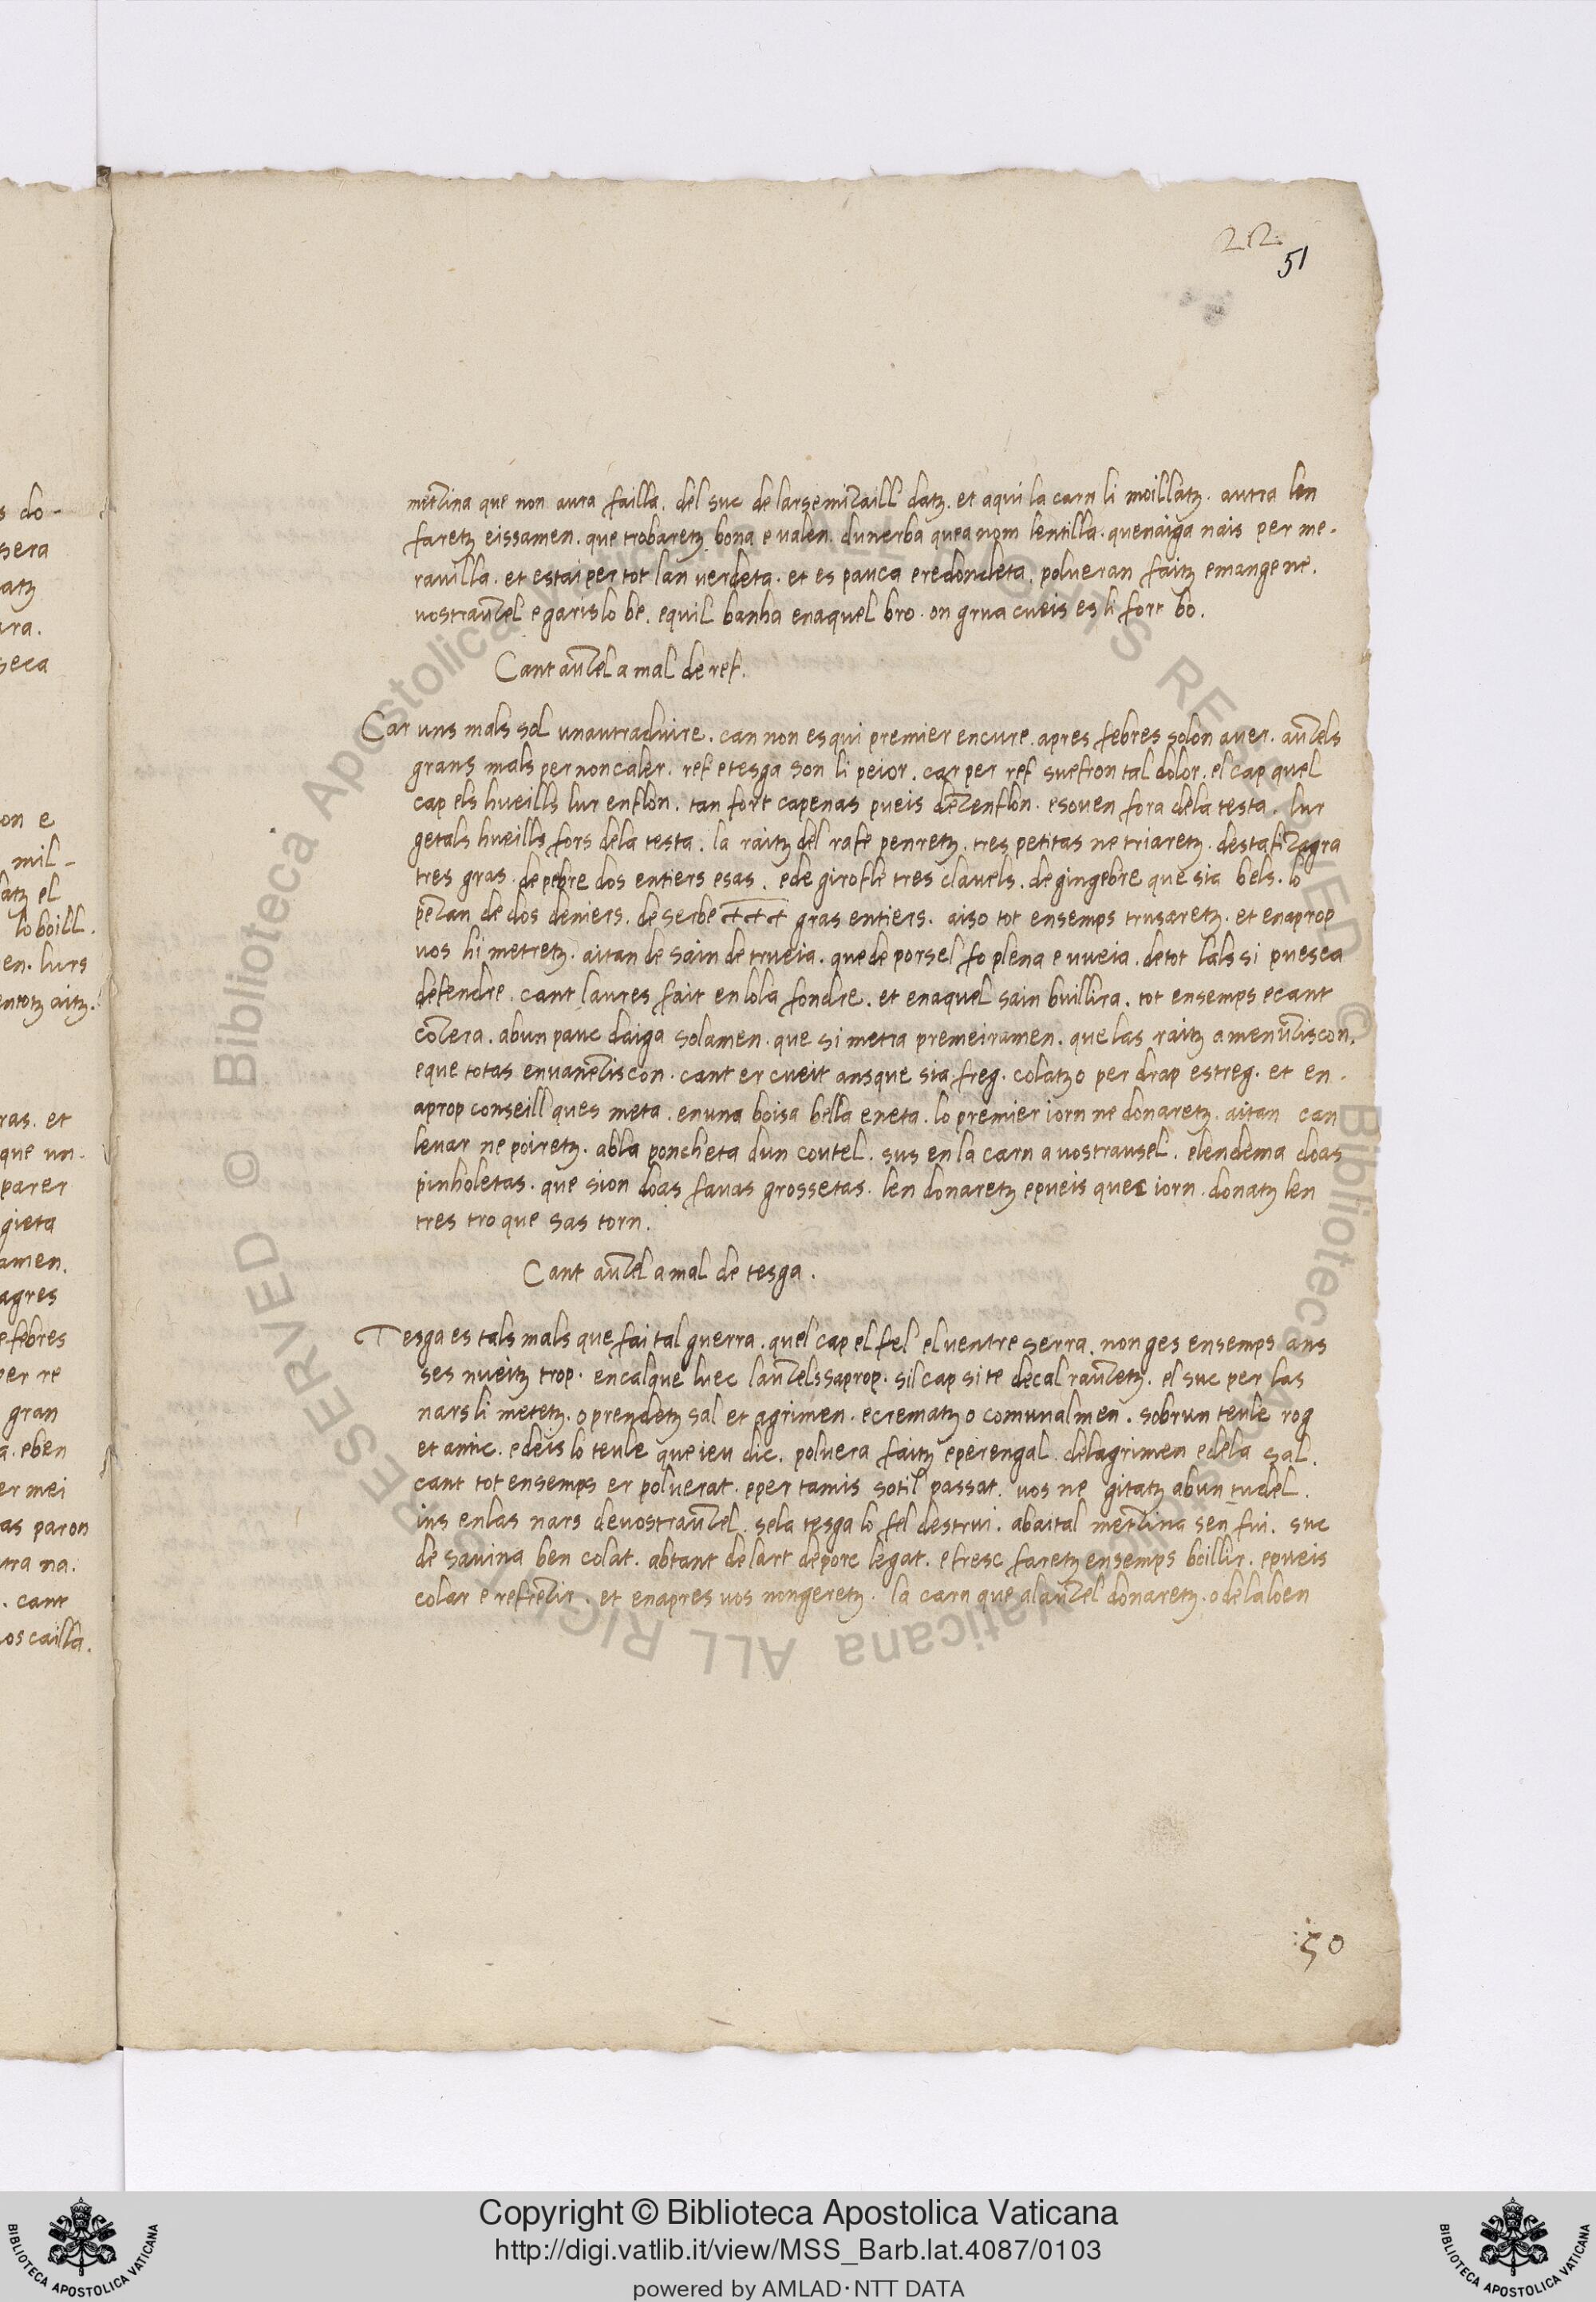 22
51
metzina que non aura failla. del suc de larsemizaill datz. et aqui la carn li moillatz. autra len
faretz eissamen. que trobaretz bona e valen. dunerba quea nom lentilla. quenaiga nais per me-
ravilla. et estai per tot lan verdeta. et es pauca eredondeta. polveran faitz emangene.
vostrauzel egarislo be. equil banha enaquel bro. on grua cueis es li fort bo.
Cant auzel a mal de ref.
Car uns mals sol unautraduire. can non es qui premier encure. apres febres solon aver. auzels
grans mals per noncaler. ref etesga son li peior. car per ref suefron tal dolor. el cap quel
cap els hueills lur enflon. tan fort capenas pueis dezenflon. esoven fora dela testa. lur
getals hueills fors dela testa. la raitz del rafe penretz. tres petitas ne triaretz. destafizagra
tres gras. de pebre dos entiers esas. ede girofle tres clavels. de gingebre que sia bels. lo
pezan de dos deniers. de serbe +++ gras entiers. aiso tot ensemps trusaretz. et enaprop
vos hi metretz. aitan de sain de trueia. que de porsel fo plena e vueia. detot lals si puesca
defendre. cant laures fait en lola fondre. et enaquel sain buillira. tot ensemps ecant
cozera. abun pauc daiga solamen. que si metra premeiramen. que las raitz amenuziscon.
eque totas envaneziscon. cant er cueit ansque sia freg. colatzo per drap estreg. et en-
aprop conseill ques meta. enuna boisa bella eneta. lo premier iorn ne donaretz. aitan can
levar ne poiretz. abla poncheta dun coutel. sus en la carn a vostrausel. elendema doas
pinholetas. que sion doas favas grossetas. len donaretz epueis quec iorn. donatz len
tres tro que sas torn.
Cant auzel a mal de tesga.
Tesga es tals mals que fai tal guerra. quel cap el fel el ventre serra. non ges ensemps ans
ses nueitz trop. en calque luec lauzelssaprop. sil cap site decal rauzetz. el suc per las
nars li metetz. o prendetz sal et agrimen. ecrematz o comunalmen. sobrun teule rog
et antic. edeis lo teule que ieu dic. polvera faitz eperengal. delagrimen edela sal.
cant tot ensemps er polverat. eper tamis sotil passat. vos ne gitatz abun tudel.
ins enlas nars devostrauzel. sela tesga lo fel destrui. abaital metzina sen fui. suc
de savina ben colat. abtant delart deporc legat. efresc faretz ensemps boillir. epueis
colar e refrezir. et enapres vos nongeretz. la carn que alauzel donaretz. o delaloen
50
s do-
sera
atz
ura.
seca
on e
mil-
latz el
lo boill.
en. lurs
entotz aitz.
ras. et
que un.
parer
gieta
amen.
agres
e febres
per re
gran
a. eben
er mei
as paron
tra na.
. cant
los cailla.
Copyright © Biblioteca Apostolica Vaticana
http://digi.vatlib.it/view/MSS_Barb.lat.4087/0103
powered by AMLAD·NTT DATA
BIBLIOTECA APOSTOLICA VATICANA
BIBLIOTECA APOSTOLICA VATICANA
© Biblioteca Apostolica Vaticana ALL RIGHTS RESERVED
© Biblioteca Apostolica Vaticana ALL RIGHTS RESERVED